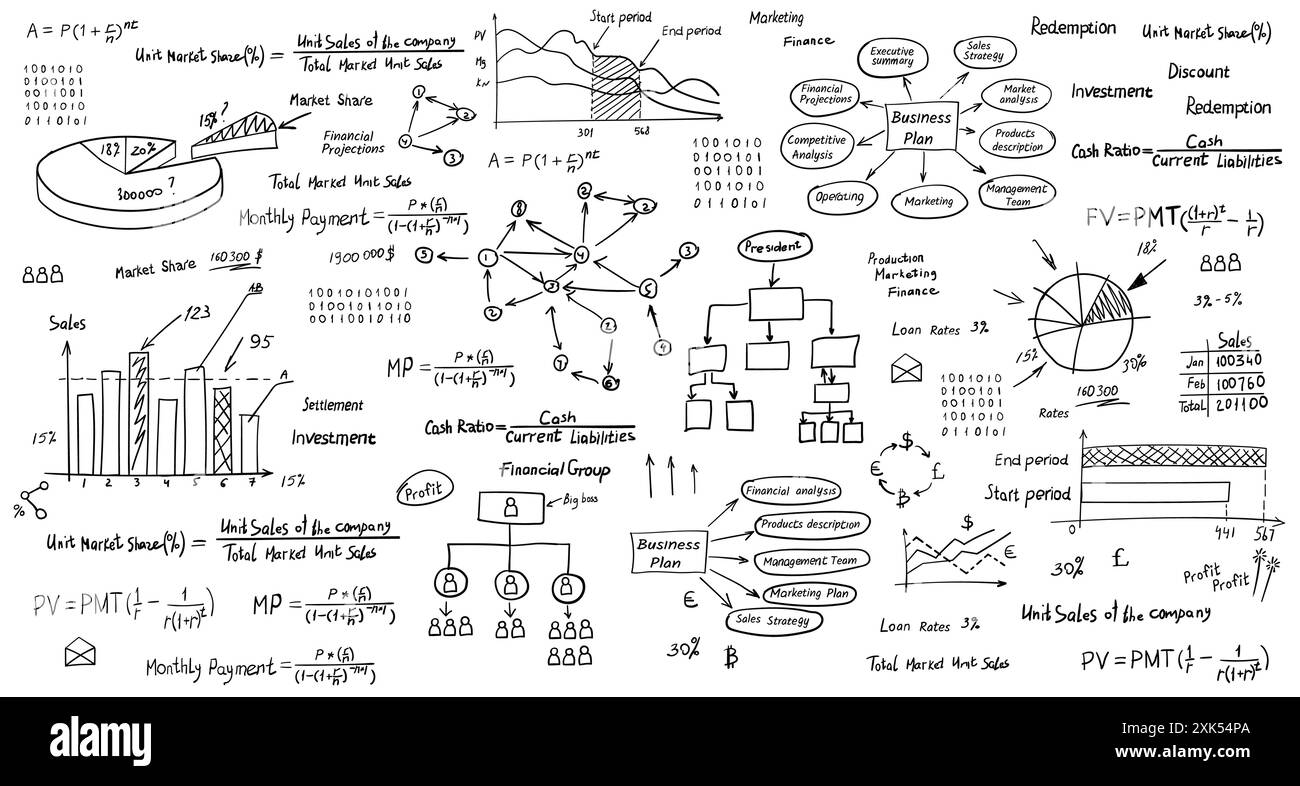 A = P(1 + r/n)^nt
1001010
0100101
0011001
1001010
0110101
Unit Market Share(%) = Unit Sales of the company / Total Marked Unit Sales
18%
20%
300000 ?
15% ?
Market Share
Financial
Projections
1
2
4
3
Total Market Unit Sales
Monthly Payment = P*(r/n) / (1-(1+r/n)^-n*1)
PV
M3
KN
Start period
End period
301
568
A = P(1 + r/n)^nt
Marketing
Finance
1001010
0100101
0011001
1001010
0110101
Executive
summary
Sales
Strategy
Financial
Projections
Market
analysis
Business
Plan
Competitive
Analysis
Products
description
Operating
Marketing
Management
Team
Redemption
Unit Market Share(%)
Discount
Investment
Redemption
Cash Ratio = Cash / Current Liabilities
FV=PMT((1+r)^t/r - 1/r)
Market Share 160300 $
1900000$
10010101001
0100101001
00110010110
8
2
2
5
1
4
3
3
5
2
2
4
7
6
President
Production
Marketing
Finance
Loan Rates 3%
18%
15%
30%
160300
Rates
3%-5%
Sales
Jan 100340
Feb 100760
Total 201100
1001010
0100101
0011001
1001010
0110101
Sales
123
AB
95
A
15%
1 2 3 4 5 6 7
15%
Settlement
Investment
MP = P*(r/n) / (1-(1+r/n)^-n*1)
Cash Ratio = Cash / Current Liabilities
Financial Group
Profit
Big boss
%
Unit Market Share(%) = Unit Sales of the company / Total Market Unit Sales
PV=PMT(1/r - 1/r(1+r)^t)
MP = P*(r/n) / (1-(1+r/n)^-n*1)
Monthly Payment = P*(r/n) / (1-(1+r/n)^-n*1)
Business
Plan
Financial analysis
Products description
Management Team
Marketing Plan
Sales Strategy
€
30%
₿
$
€
£
₿
$
€
End period
Start period
0
441
567
30%
£
Profit
Profit
Loan Rates 3%
Total Market Unit Sales
Unit Sales of the company
PV=PMT(1/r - 1/r(1+r)^t)
alamy
Image ID: 2XK54PA
www.alamy.com